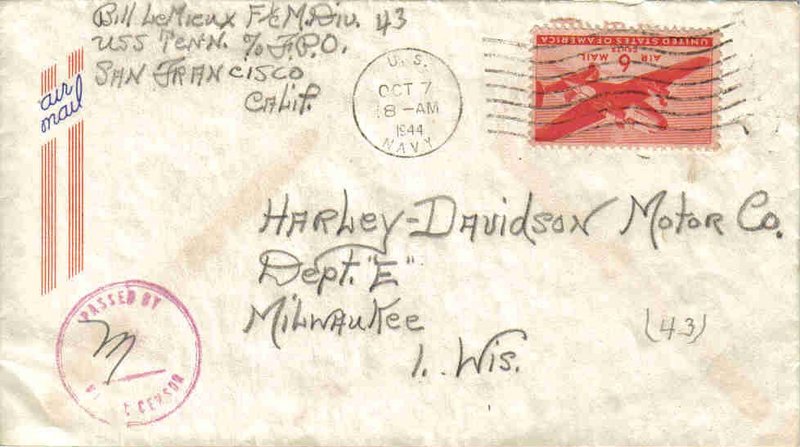 Bill LeMieux F2/c M.Div. 43
USS Tenn. c/o F.P.O.
San Francisco
Calif.
air
mail
U.S.
OCT 7
8-AM
1944
NAVY
UNITED STATES OF AMERICA
CENTS
6
AIR MAIL
Harley-Davidson Motor Co.
Dept. "E"
Milwaukee
1. Wis.
(43)
PASSED BY
CENSOR